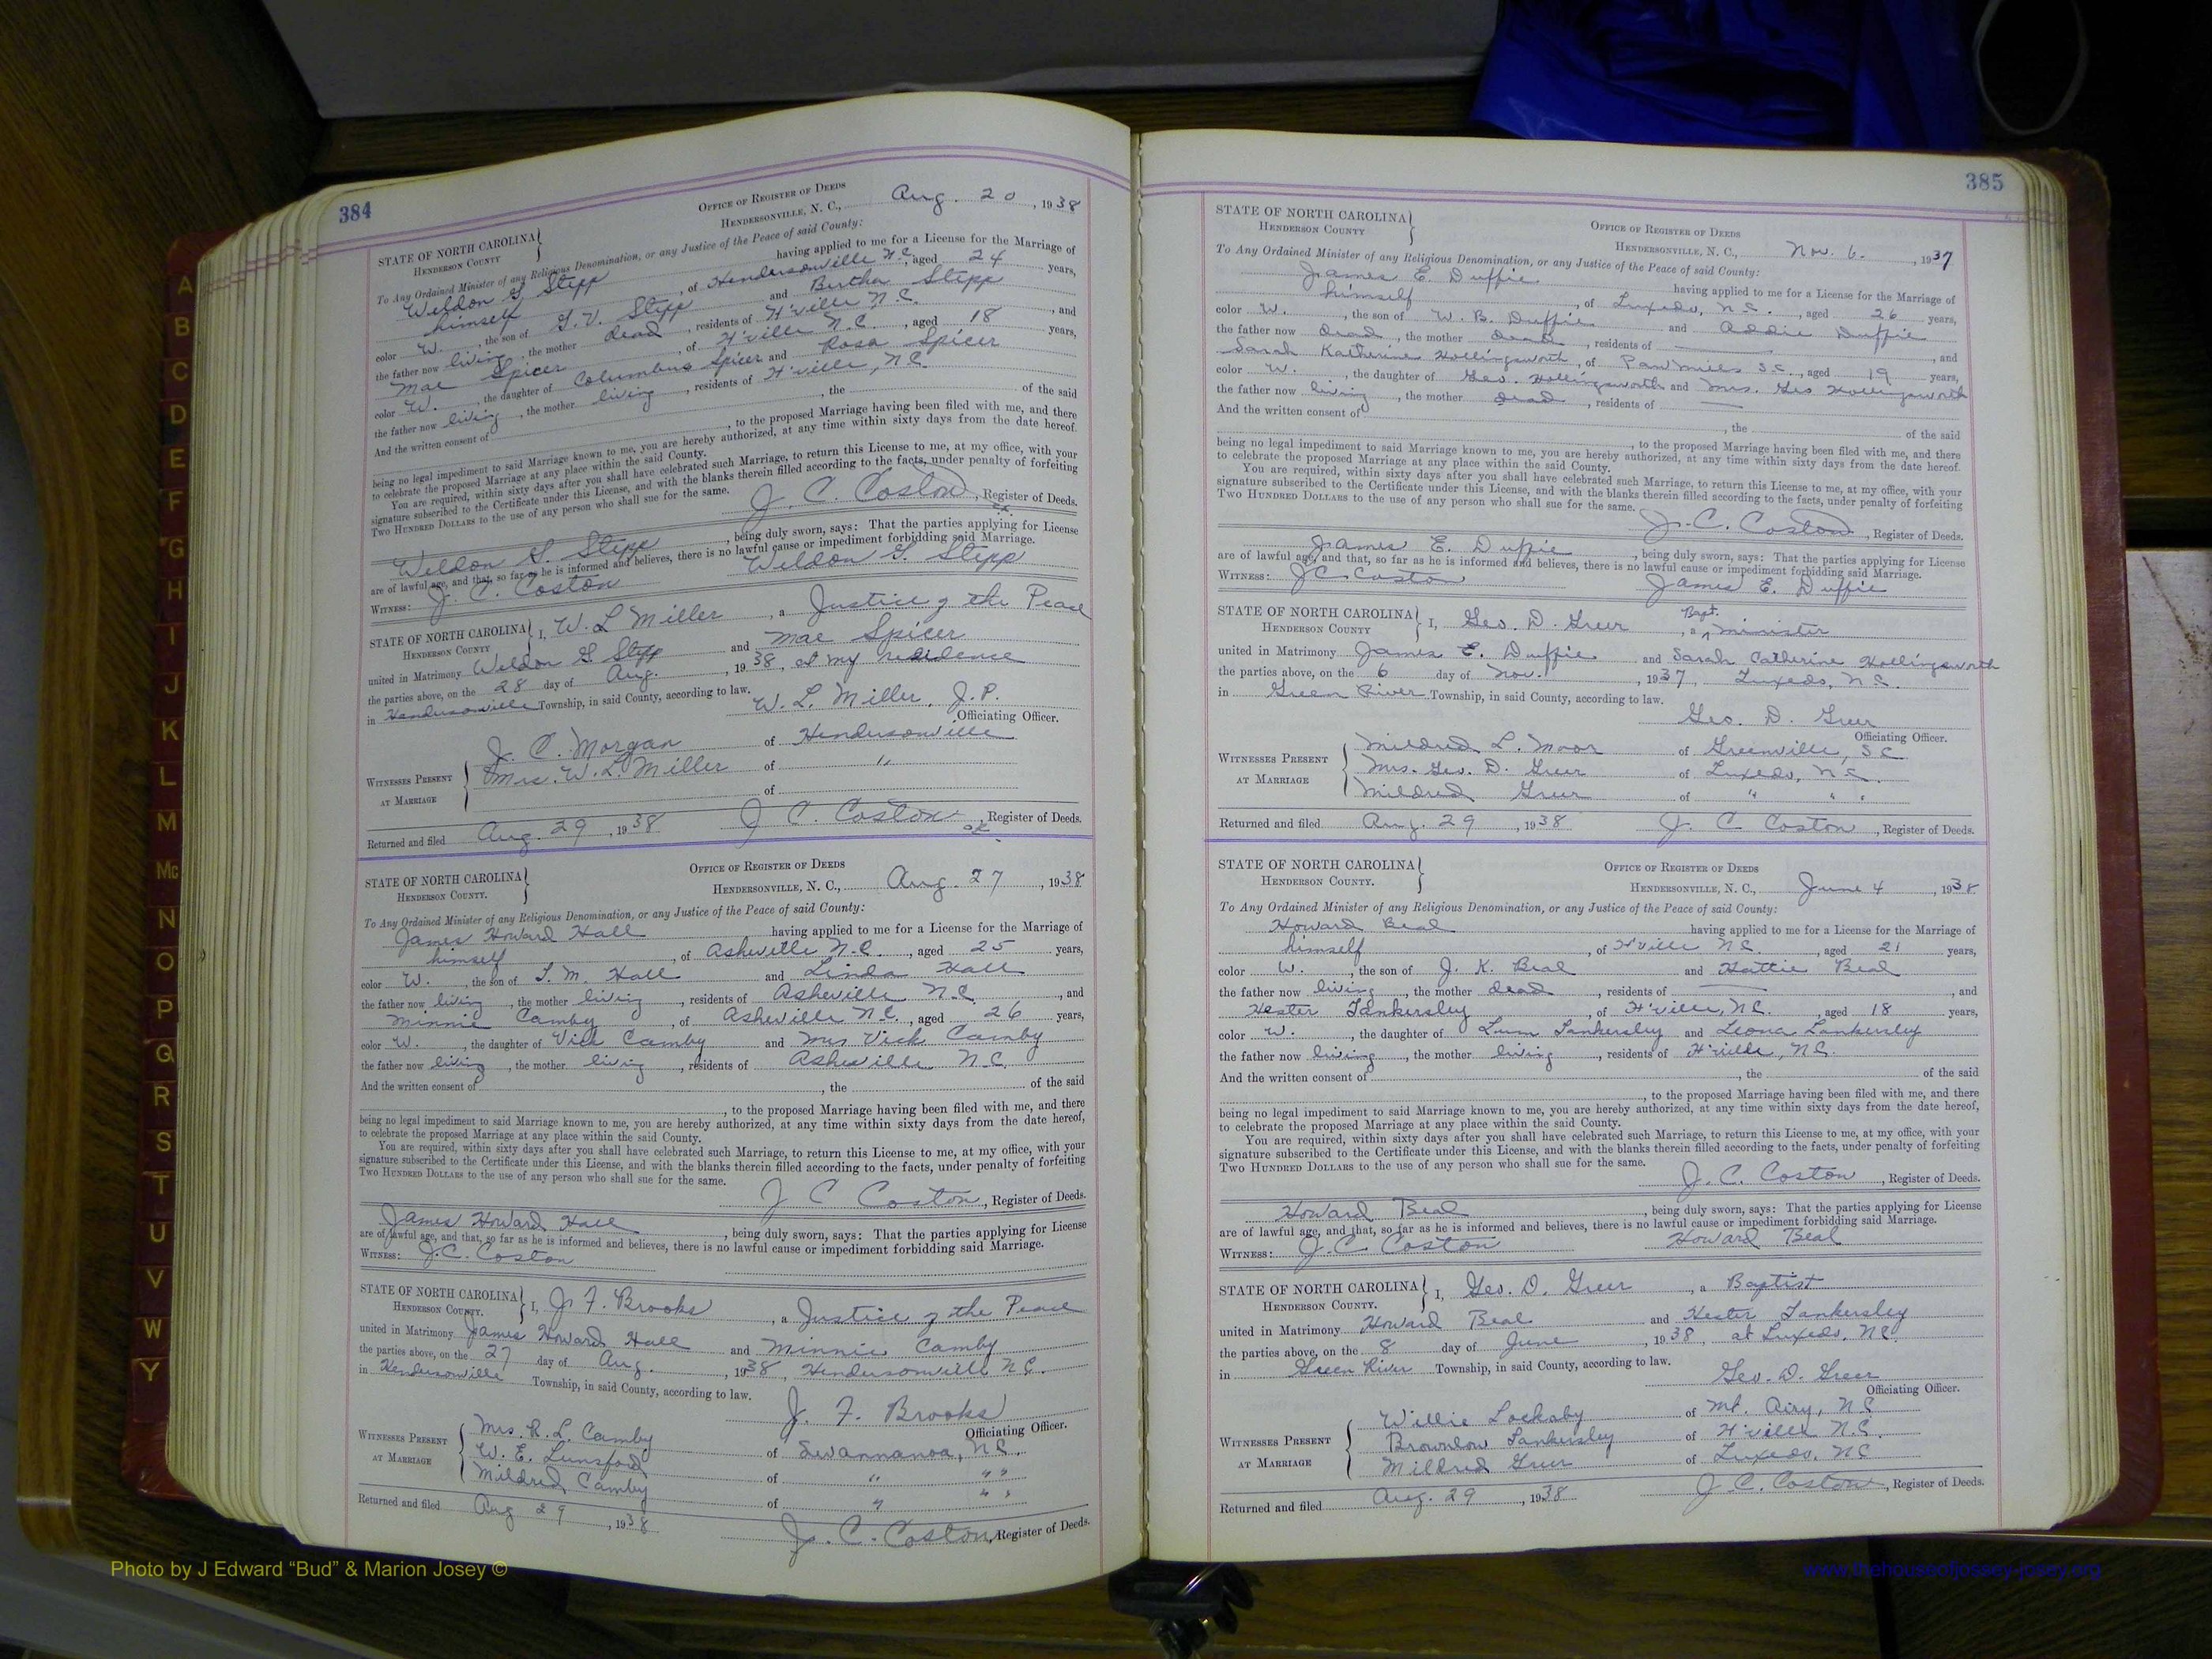 384
STATE OF NORTH CAROLINA
HENDERSON COUNTY
OFFICE OF REGISTER OF DEEDS
HENDERSONVILLE, N. C., Aug. 20, 1938
To Any Ordained Minister of any Religious Denomination, or any Justice of the Peace of said County:
Weldon G Stepp having applied to me for a License for the Marriage of
himself, of Hendersonville N.C., aged 24 years,
color W., the son of G. V. Stepp and Bertha Stepp
the father now living, the mother dead, residents of H'ville N.C., and
Mae Spicer, of H'ville N.C., aged 18 years,
color W., the daughter of Columbus Spicer and Rosa Spicer
the father now living, the mother living, residents of H'ville, N.C.
And the written consent of , the of the said
, to the proposed Marriage having been filed with me, and there
being no legal impediment to said Marriage known to me, you are hereby authorized, at any time within sixty days from the date hereof.
to celebrate the proposed Marriage at any place within the said County.
You are required, within sixty days after you shall have celebrated such Marriage, to return this License to me, at my office, with your
signature subscribed to the Certificate under this License, and with the blanks therein filled according to the facts, under penalty of forfeiting
TWO HUNDRED DOLLARS to the use of any person who shall sue for the same.
J. C. Coston, Register of Deeds.
Weldon G. Stepp, being duly sworn, says: That the parties applying for License
are of lawful age, and that, so far as he is informed and believes, there is no lawful cause or impediment forbidding said Marriage.
WITNESS: J. C. Coston Weldon G. Stepp
STATE OF NORTH CAROLINA
HENDERSON COUNTY
I, W. L Miller, a Justice of the Peace
united in Matrimony Weldon G Stepp and Mae Spicer
the parties above, on the 28 day of Aug., 1938, at my residence
in Hendersonville Township, in said County, according to law.
W. L. Miller, J.P.
Officiating Officer.
WITNESSES PRESENT
AT MARRIAGE
J. C. Morgan of Hendersonville
Mrs. W. L. Miller of "
of
Returned and filed Aug. 29, 1938 J. C. Coston, Register of Deeds.
STATE OF NORTH CAROLINA
HENDERSON COUNTY.
OFFICE OF REGISTER OF DEEDS
HENDERSONVILLE, N. C., Aug. 27, 1938
To Any Ordained Minister of any Religious Denomination, or any Justice of the Peace of said County:
James Howard Hall having applied to me for a License for the Marriage of
himself, of Asheville N.C., aged 25 years,
color W., the son of T. M. Hall and Linda Hall
the father now living, the mother living, residents of Asheville N.C., and
Minnie Camby, of Asheville N.C., aged 26 years,
color W., the daughter of Vick Camby and Mrs Vick Camby
the father now living, the mother living, residents of Asheville N.C.
And the written consent of , the of the said
, to the proposed Marriage having been filed with me, and there
being no legal impediment to said Marriage known to me, you are hereby authorized, at any time within sixty days from the date hereof,
to celebrate the proposed Marriage at any place within the said County.
You are required, within sixty days after you shall have celebrated such Marriage, to return this License to me, at my office, with your
signature subscribed to the Certificate under this License, and with the blanks therein filled according to the facts, under penalty of forfeiting
TWO HUNDRED DOLLARS to the use of any person who shall sue for the same.
J C Coston, Register of Deeds.
James Howard Hall, being duly sworn, says: That the parties applying for License
are of lawful age, and that, so far as he is informed and believes, there is no lawful cause or impediment forbidding said Marriage.
WITNESS: J. C. Coston
STATE OF NORTH CAROLINA
HENDERSON COUNTY.
I, J. F. Brooks, a Justice of the Peace
united in Matrimony James Howard Hall and Minnie Camby
the parties above, on the 27 day of Aug., 1938, Hendersonville N.C.
in Hendersonville Township, in said County, according to law.
J. F. Brooks
Officiating Officer.
WITNESSES PRESENT
AT MARRIAGE
Mrs. R. L. Camby of Swannanoa, N.C.
W. E. Lunsford of " " "
Mildred Camby of " " "
Returned and filed Aug 29, 1938 J. C. Coston, Register of Deeds.
385
STATE OF NORTH CAROLINA
HENDERSON COUNTY
OFFICE OF REGISTER OF DEEDS
HENDERSONVILLE, N. C., Nov. 6., 1937
To Any Ordained Minister of any Religious Denomination, or any Justice of the Peace of said County:
James E. Duffie having applied to me for a License for the Marriage of
himself, of Tuxedo, N.C., aged 26 years,
color W., the son of W. B. Duffie and Addie Duffie
the father now dead, the mother dead, residents of , and
Sarah Katherine Hollingsworth, of Paw Mills S.C., aged 19 years,
color W., the daughter of Geo. Hollingsworth and Mrs. Geo Hollingsworth
the father now living, the mother dead, residents of
And the written consent of , the of the said
, to the proposed Marriage having been filed with me, and there
being no legal impediment to said Marriage known to me, you are hereby authorized, at any time within sixty days from the date hereof.
to celebrate the proposed Marriage at any place within the said County.
You are required, within sixty days after you shall have celebrated such Marriage, to return this License to me, at my office, with your
signature subscribed to the Certificate under this License, and with the blanks therein filled according to the facts, under penalty of forfeiting
TWO HUNDRED DOLLARS to the use of any person who shall sue for the same.
J. C. Coston, Register of Deeds.
James E. Duffie, being duly sworn, says: That the parties applying for License
are of lawful age, and that, so far as he is informed and believes, there is no lawful cause or impediment forbidding said Marriage.
WITNESS: J C Coston James E. Duffie
STATE OF NORTH CAROLINA
HENDERSON COUNTY
I, Geo. D. Greer, a Bapt. minister
united in Matrimony James E. Duffie and Sarah Catherine Hollingsworth
the parties above, on the 6 day of Nov., 1937, Tuxedo, N.C.
in Green River Township, in said County, according to law.
Geo. D. Greer
Officiating Officer.
WITNESSES PRESENT
AT MARRIAGE
Mildred L. Moor of Greenville, S.C.
Mrs. Geo. D. Greer of Tuxedo, N.C.
Mildred Greer of " " "
Returned and filed Aug. 29, 1938 J. C Coston, Register of Deeds.
STATE OF NORTH CAROLINA
HENDERSON COUNTY.
OFFICE OF REGISTER OF DEEDS
HENDERSONVILLE, N. C., June 4, 1938
To Any Ordained Minister of any Religious Denomination, or any Justice of the Peace of said County:
Howard Beal having applied to me for a License for the Marriage of
himself, of H'ville N.C., aged 21 years,
color W., the son of J. K. Beal and Hattie Beal
the father now living, the mother dead, residents of , and
Hester Tankersley, of H'ville, N.C., aged 18 years,
color W., the daughter of Tankersley and Leona Tankersley
the father now living, the mother living, residents of H'ville, N.C.
And the written consent of , the of the said
, to the proposed Marriage having been filed with me, and there
being no legal impediment to said Marriage known to me, you are hereby authorized, at any time within sixty days from the date hereof,
to celebrate the proposed Marriage at any place within the said County.
You are required, within sixty days after you shall have celebrated such Marriage, to return this License to me, at my office, with your
signature subscribed to the Certificate under this License, and with the blanks therein filled according to the facts, under penalty of forfeiting
TWO HUNDRED DOLLARS to the use of any person who shall sue for the same.
J. C. Coston, Register of Deeds.
Howard Beal, being duly sworn, says: That the parties applying for License
are of lawful age, and that, so far as he is informed and believes, there is no lawful cause or impediment forbidding said Marriage.
WITNESS: J. C Coston Howard Beal
STATE OF NORTH CAROLINA
HENDERSON COUNTY.
I, Geo. D. Greer, a Baptist
united in Matrimony Howard Beal and Hester Tankersley
the parties above, on the 8 day of June, 1938, at Tuxedo, N.C.
in Green River Township, in said County, according to law.
Geo. D. Greer
Officiating Officer.
WITNESSES PRESENT
AT MARRIAGE
Willie Locksby of Mt. Airy, N.C
Brownlow Tankersley of H'ville N.C.
Mildred Greer of Tuxedo, N.C
Returned and filed Aug. 29, 1938 J. C. Coston, Register of Deeds.
A
B
C
D
E
F
G
H
I
J
K
L
M
Mc
N
O
P
Q
R
S
T
U
V
W
Y
Photo by J Edward "Bud" & Marion Josey ©
www.thehouseofjossey-josey.org